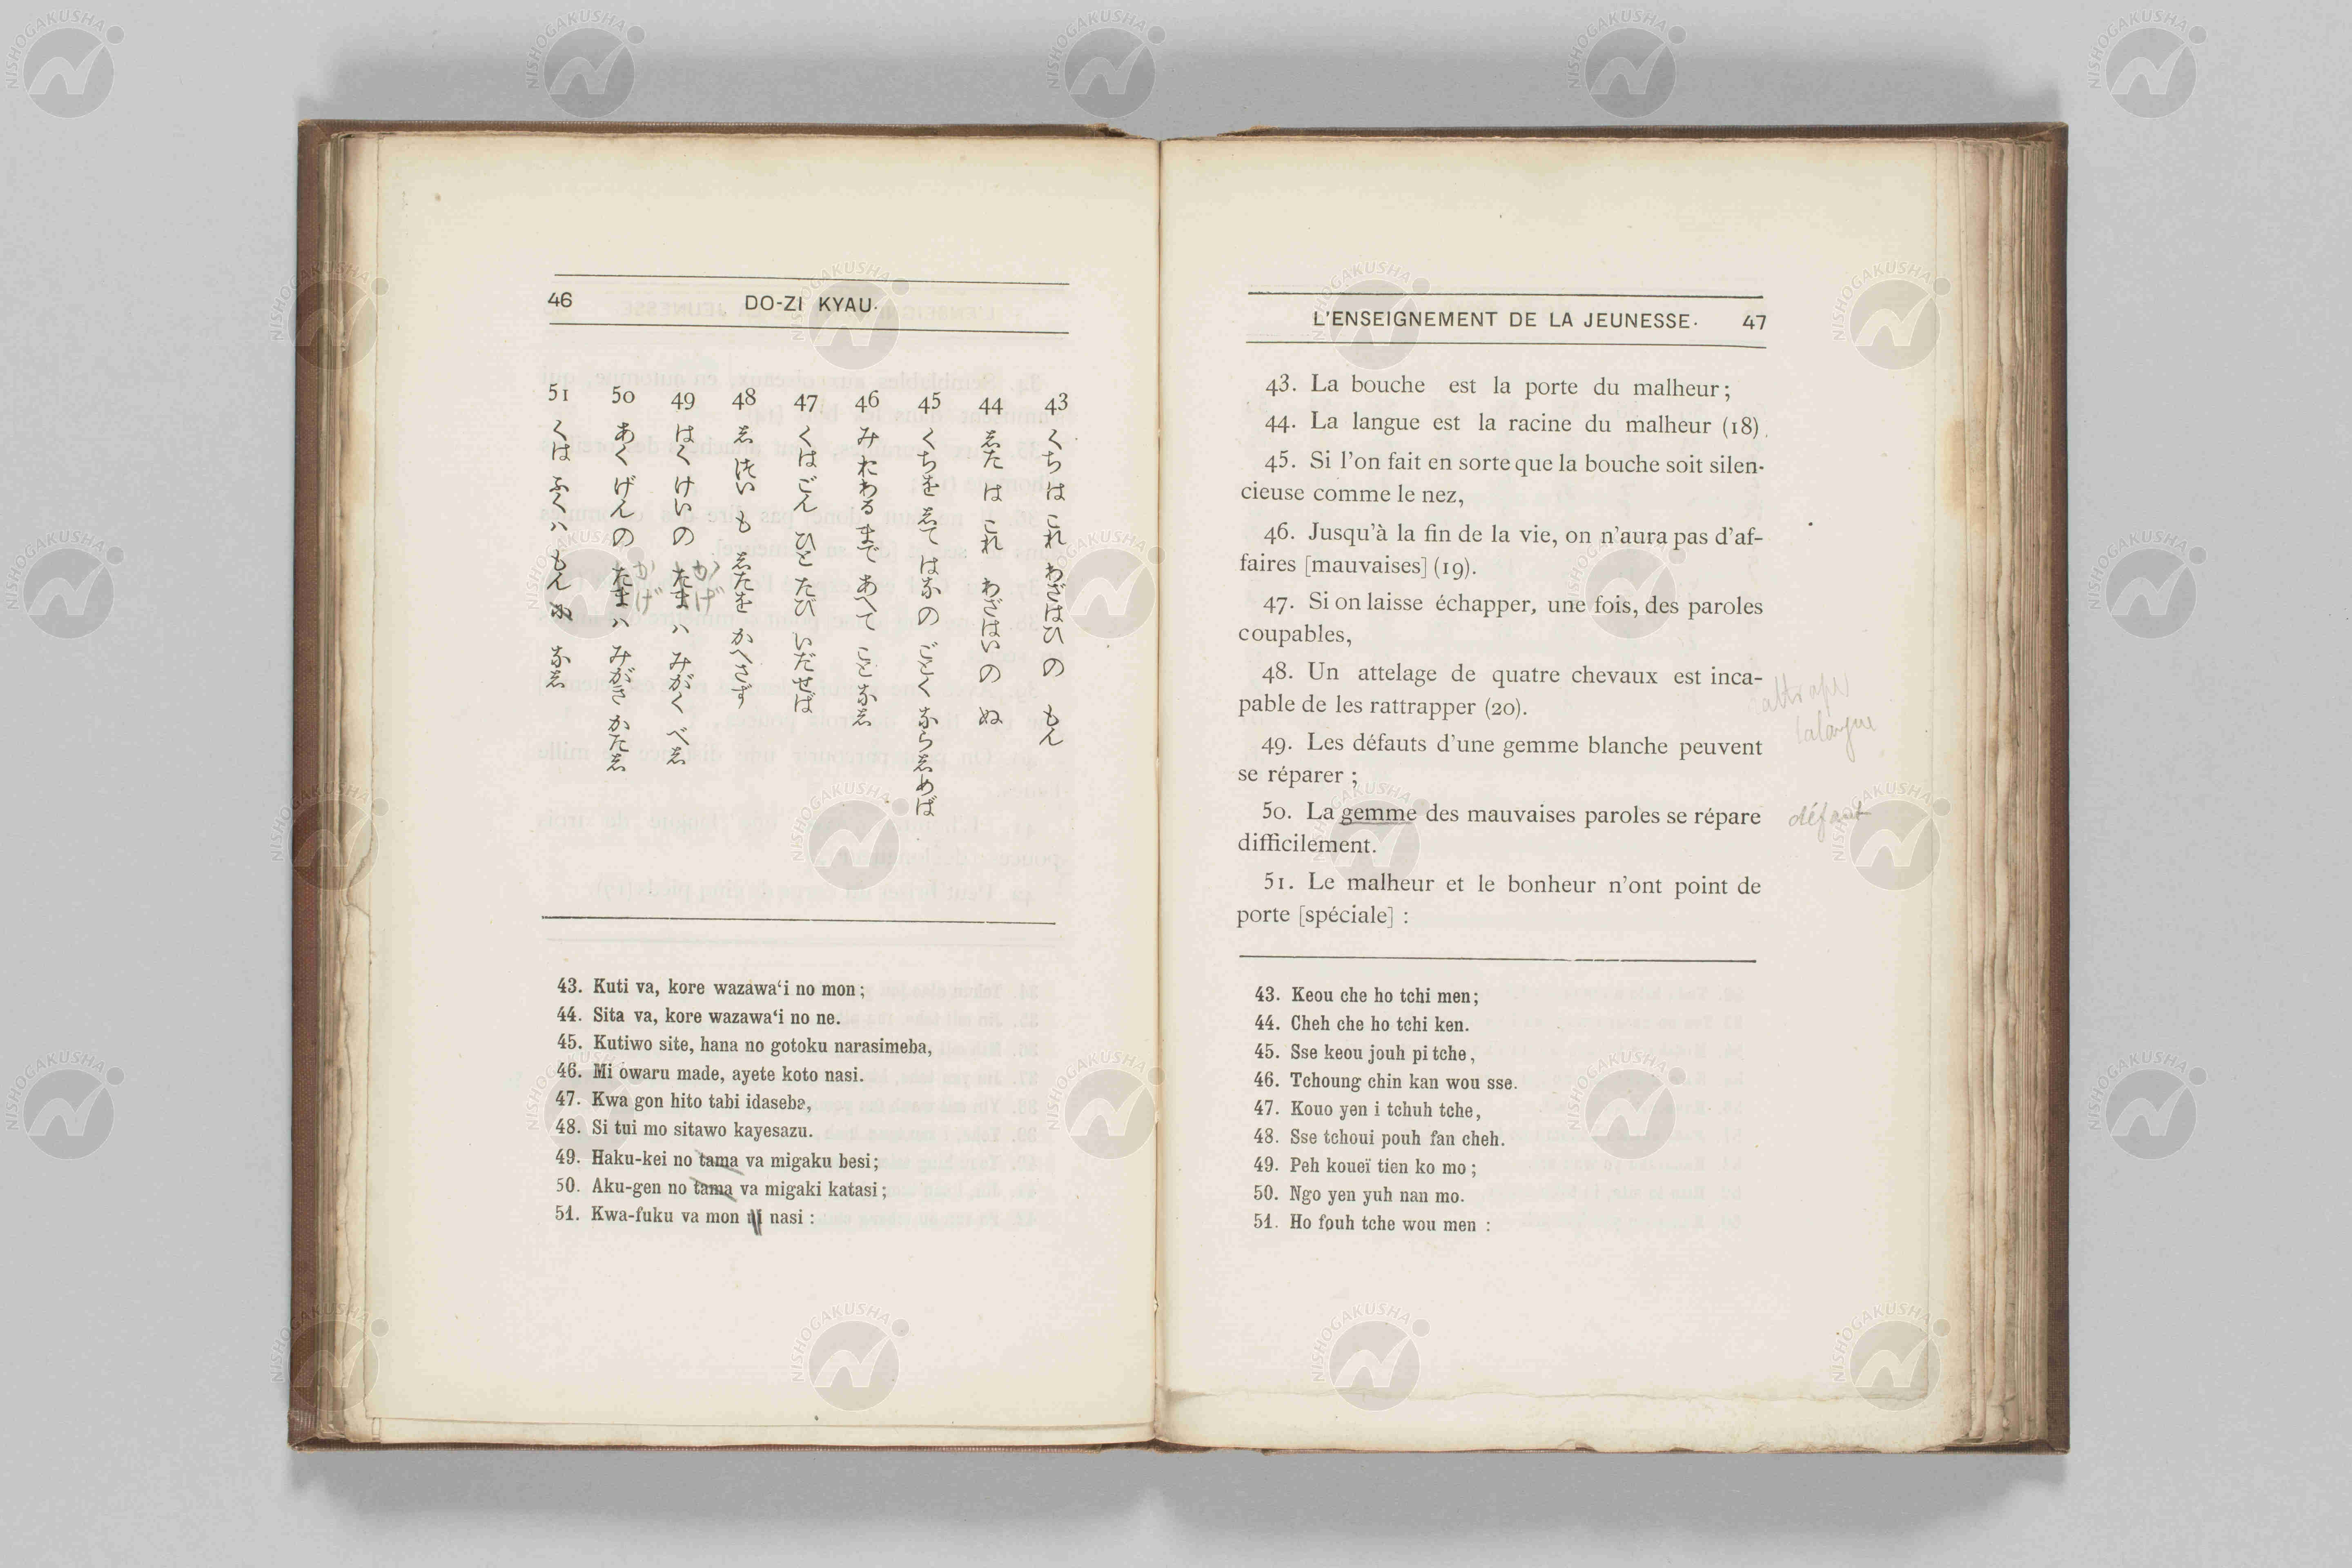 46 DO-ZI KYAU.
43 くちは これ わざはひの もん
44 志た は これ わざはい の ね
45 くちを 志て はな の ごとく ならしめば
46 み おわる まで あへて ことなし
47 くはごん ひと たび いだせば
48 し つい も 志たを かへさず
49 はくけいの たま ハ みがく べし
かげ
50 あくげんの たま ハ みがき かたし
かげ
51 くは ふくハ もん に なし
43. Kuti va, kore wazawa‘i no mon;
44. Sita va, kore wazawa‘i no ne.
45. Kutiwo site, hana no gotoku narasimeba,
46. Mi owaru made, ayete koto nasi.
47. Kwa gon hito tabi idaseba,
48. Si tui mo sitawo kayesazu.
49. Haku-kei no tama va migaku besi;
50. Aku-gen no tama va migaki katasi;
51. Kwa-fuku va mon ni nasi :
L'ENSEIGNEMENT DE LA JEUNESSE. 47
43. La bouche est la porte du malheur;
44. La langue est la racine du malheur (18).
45. Si l'on fait en sorte que la bouche soit silen-
cieuse comme le nez,
46. Jusqu'à la fin de la vie, on n'aura pas d'af-
faires [mauvaises] (19).
47. Si on laisse échapper, une fois, des paroles
coupables,
48. Un attelage de quatre chevaux est inca-
pable de les rattrapper (20).
rattraper
la langue
49. Les défauts d'une gemme blanche peuvent
se réparer ;
50. La gemme des mauvaises paroles se répare
difficilement.
défaut
51. Le malheur et le bonheur n'ont point de
porte [spéciale] :
43. Keou che ho tchi men;
44. Cheh che ho tchi ken.
45. Sse keou jouh pi tche,
46. Tchoung chin kan wou sse.
47. Kouo yen i tchuh tche,
48. Sse tchoui pouh fan cheh.
49. Peh koueï tien ko mo ;
50. Ngo yen yuh nan mo.
51. Ho fouh tche wou men :
NISHOGAKUSHA